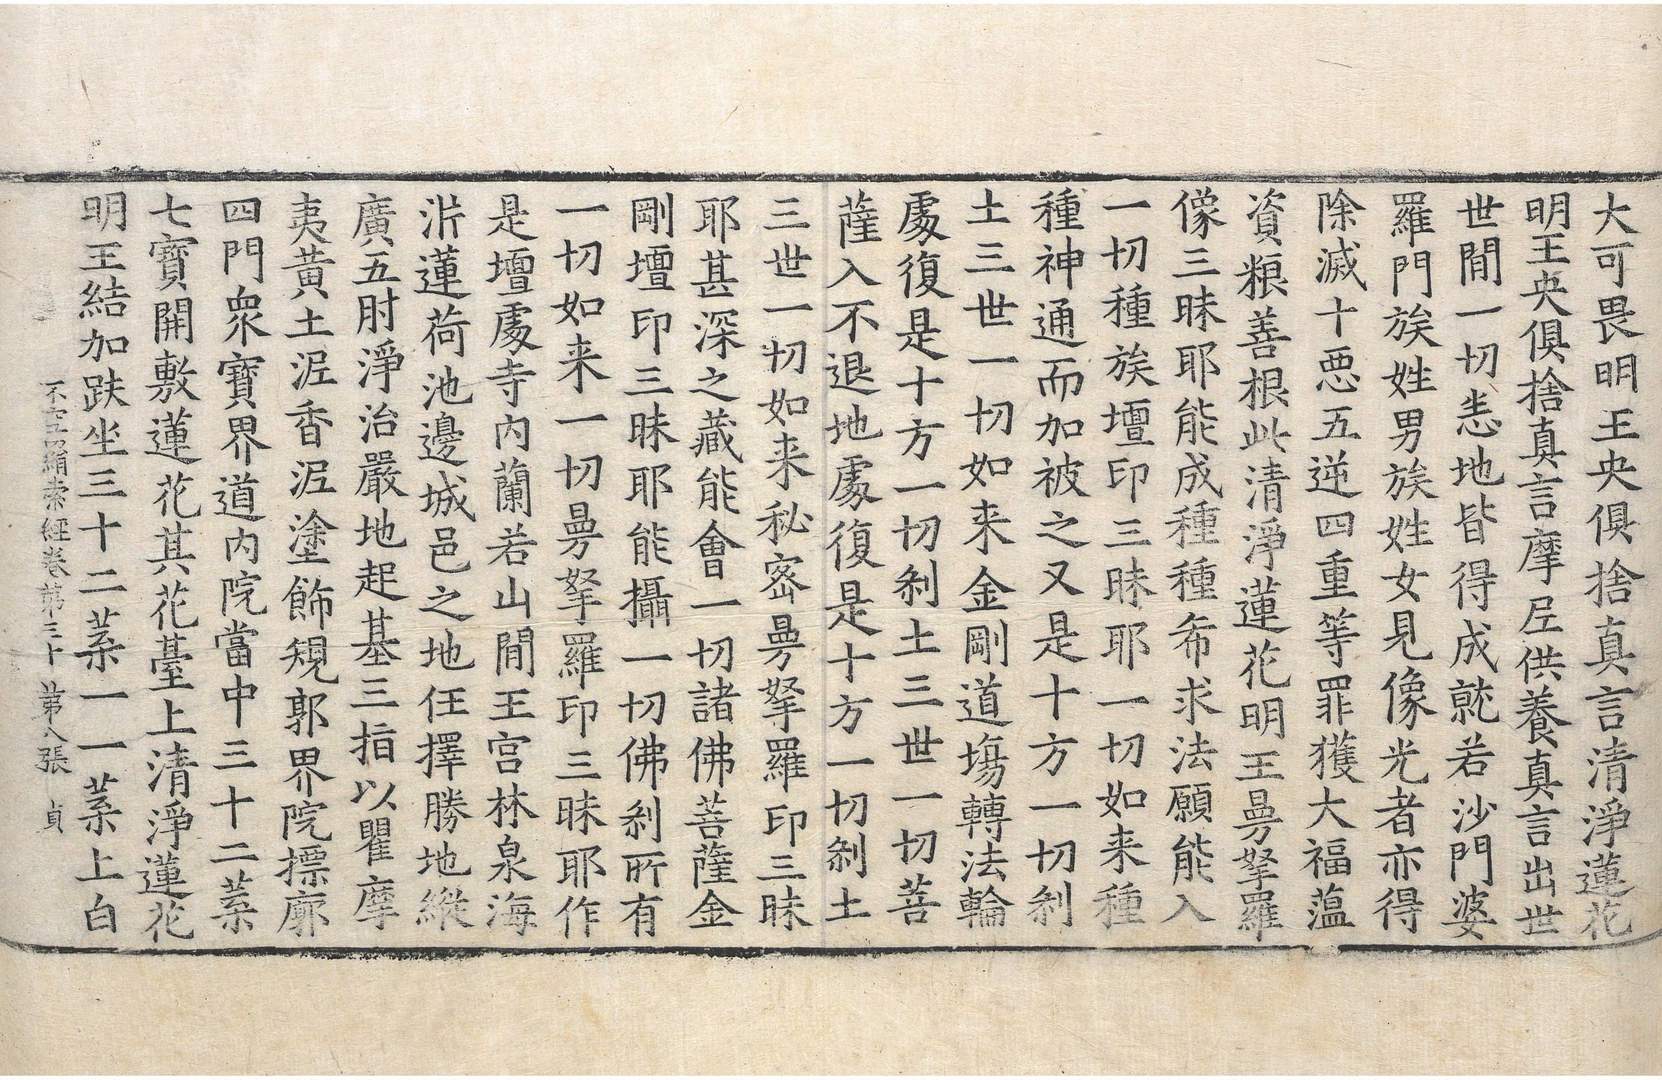 大可畏明王央俱捨真言清淨蓮花
明王央俱捨真言摩𡰱供養真言出世
世閒一切恙地皆得成就若沙門婆
羅門族姓男族姓女見像光者亦得
除滅十惡五逆四重等罪獲大福蕰
資粮善根此清淨蓮花明王曼拏羅
像三昧耶能成種種希求法願能入
一切種族壇印三昧耶一切如来種
種神通而加被之又是十方一切剎
土三世一切如来金剛道場轉法輪
處復是十方一切剎土三世一切菩
薩入不退地處復是十方一切剎土
三世一切如来秘密曼拏羅印三昧
耶甚深之藏能會一切諸佛菩薩金
剛壇印三昧耶能攝一切佛剎所有
一切如来一切曼拏羅印三昧耶作
是壇處寺內蘭若山閒王宮林泉海
泋蓮荷池邊城邑之地任擇勝地縱
廣五肘淨治嚴地起基三指以瞿摩
夷黃土泥香泥塗飾規郭界院摽廓
四門眾寶界道內院當中三十二葉
七寶開敷蓮花其花臺上清淨蓮花
明王結加趺坐三十二葉一一葉上白
不空羂索經卷第三十 第八張 貞